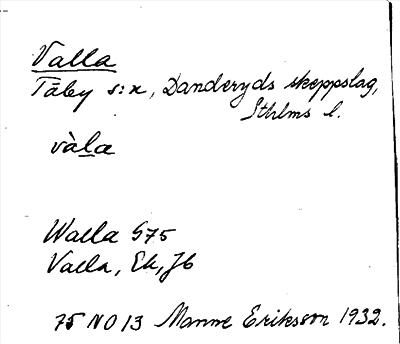 Valla
Täby s:n, Danderyds skeppslag,
Sthlms l.
vàla
Walla G75
Valla, Ek, Jb
75 NO 13 Manne Eriksson 1932.